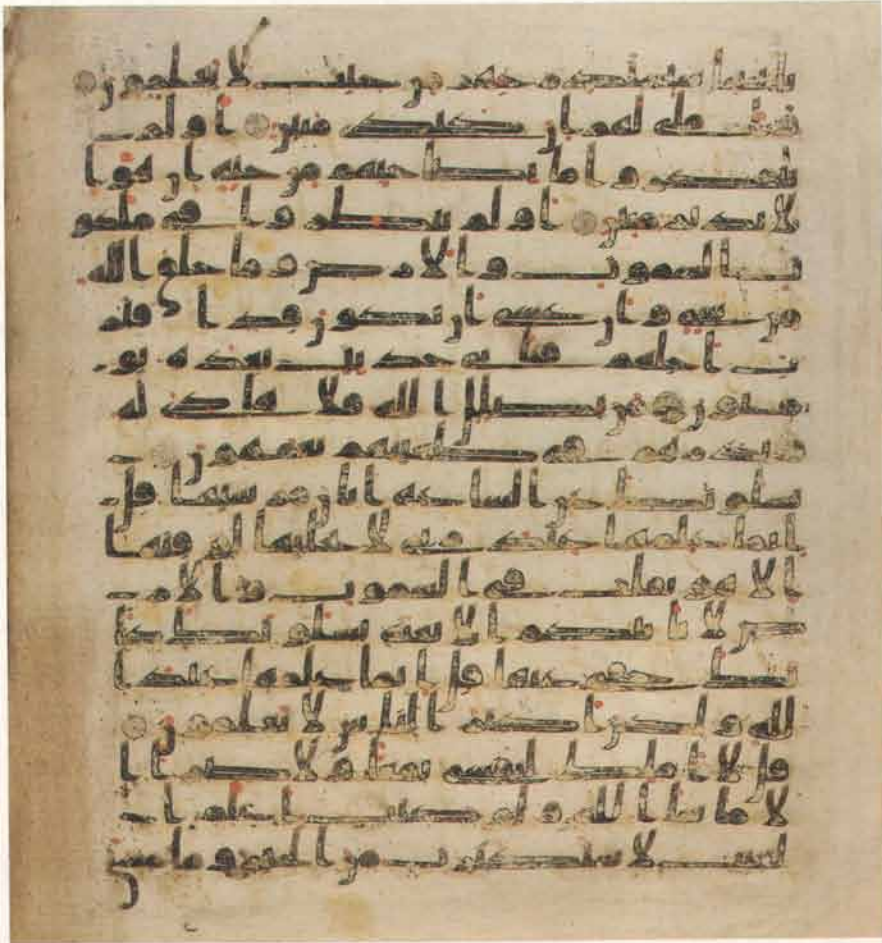 بايتنا سنستدرجهم من حيث لا يعلمون
واملي لهم ان كيدي متين اولم
يتفكروا ما بصاحبهم من جنه ان هو ا
لا نذير مبين اولم ينظروا في ملكو
ت السموت والارض وما خلق الله
من شي وان عسي ان يكون قد اقتر
ب اجلهم فباي حديث بعده يو
منون من يضلل الله فلا هادي له
ويذرهم في طغينهم يعمهون
يسلونك عن الساعه ايان مرسيها قل
انما علمها عند ربي لا يجليها لوقتها
الا هو ثقلت في السموت والار
ض لا تاتيكم الا بغته يسلونك كا
نك حفي عنها قل انما علمها عند ا
لله ولكن اكثر الناس لا يعلمون
قل لا املك لنفسي نفعا ولا ضرا ا
لا ما شا الله ولو كنت اعلم ا
لغيب لاستكثرت من الخير وما مسني